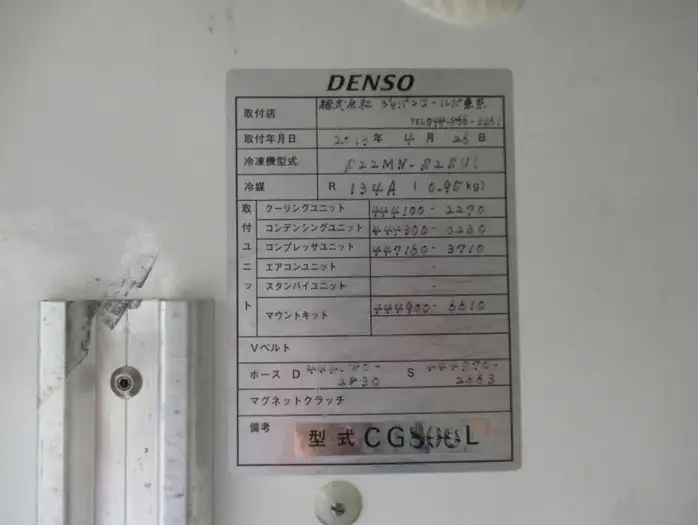 DENSO
取付店 株式会社 ジャパンコールド東京
TEL 048-
取付年月日 2013年 4月 26日
冷凍機型式 S22MN-
冷媒 R 134A ( 0.95kg)
取付ユニット
クーリングユニット 444100- 2290
コンデンシングユニット 444300- 0230
コンプレッサユニット 447160- 3710
エアコンユニット -
スタンバイユニット -
マウントキット 444900- 6610
Vベルト
ホース D S
マグネットクラッチ
備考 型式 CG500L